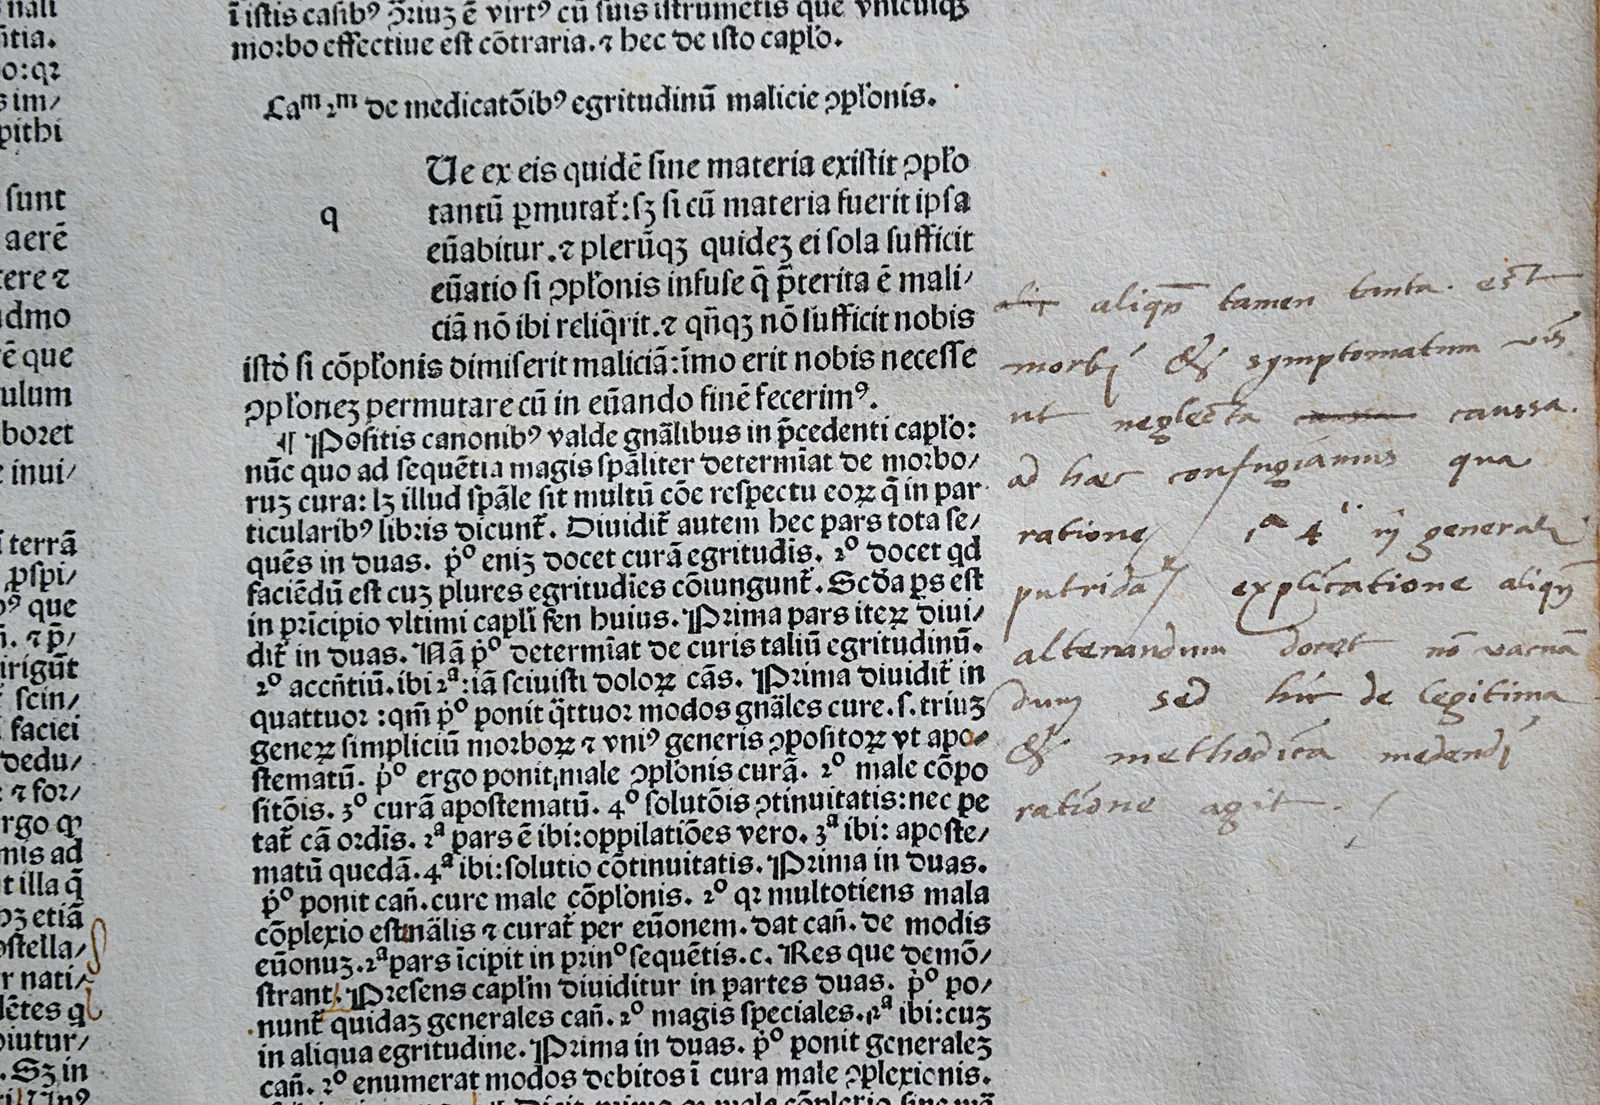 nali
ntia.
o:qꝛ
s im/
pithi
sunt
aerē
tere ⁊
udmo
ē que
culum
boret
e inui/
terrā
ꝑspi/
bꝰ que
irigūt
scin/
faciei
dedu/
⁊ for/
rgo ꝙ
mis ad
t illa q̄
bꝫ etiā
ostella/
r nati/
lētes q
biutur/
. Sꝫ in
ī istis casibꝰ ↄ̄riuꝫ ē virtꝰ cū suis īstrumētis que vnicuiqꝫ
morbo effectiue est cōtraria. ⁊ hec de isto capło.
Caᵐ 2ᵐ de medicatōibꝰ egritudinū malicie ↄpłonis.
q
Ue ex eis quidē sine materia existit ↄpło
tantū ꝑmutat̄: sꝫ si cū materia fuerit ipsa
eūabitur. ⁊ plerūqꝫ quideꝫ ei sola sufficit
eūatio si ↄpłonis infuse q̄ p̄terita ē mali/
ciā nō ibi reliq̄rit. ⁊ qn̄qꝫ nō sufficit nobis
istḋ si cōpłonis dimiserit maliciā: īmo erit nobis necesse
ↄpłoneꝫ permutare cū in eūando finē fecerimꝰ.
¶ Positis canonibꝰ valde gnālibus in p̄cedenti capło:
nūc quo ad sequētia magis spāliter determīat de morbo/
ruꝫ cura: lꝫ illud spāle sit multū cōe respectu eoꝝ q̄ in par
ticularibꝰ libris dicunt̄. Diuidit̄ autem hec pars tota se/
quēs in duas. p̊º eniꝫ docet curā egritudīs. 2º docet qd
faciēdū est cuꝫ plures egritudīes cōiungunt̄. Scḋa ꝑs est
in prīcipio vltimi capłi fen huius. Prima pars iteꝝ diui/
dit̄ in duas. Nā p̊º determīat de curis taliū egritudinū.
2º accn̄tiū. ibi 2ª: iā sciuisti doloꝝ cās. Prima diuidit̄ in
quattuor: qm̄ p̊º ponit q̄ttuor modos gnāles cure. s. triuꝫ
geneꝝ simpliciū morboꝝ ⁊ vniꝰ generis ↄpositoꝝ vt apo/
stematū. p̊º ergo ponit male ↄpłonis curā. 2º male cōpo
sitōis. 3º curā apostematū. 4º solutōis ↄtinuitatis: nec pe
tat̄ cā ordīs. 2ª pars ē ibi: oppilatiōes vero. 3ª ibi: aposte/
matū quedā. 4ª ibi: solutio cōtinuitatis. Prima in duas.
p̊º ponit cañ. cure male cōpłonis. 2º qꝛ multotiens mala
cōplexio est mālis ⁊ curat̄ per eūonem. dat cañ. de modis
eūonuꝫ. 2ª pars īcipit in prinº sequētis. c. Res que demō/
strant. Presens capłm diuiditur in partes duas. p̊º po/
nunt̄ quidaꝫ generales cañ. 2º magis speciales. 2ª ibi: cuꝫ
in aliqua egritudine. Prima in duas. p̊º ponit generaleꝫ
cañ. 2º enumerat modos debitos ī cura male ↄplexionis.
aliqn̄ tamen tanta est
morbi & symptomatum vis
ut neglecta caussa.
ad haec confugiamus qua
ratione 1ª 4ⁱ in generali
putridaꝝ explicatione aliqn̄
alternandum docet nō vacuā
dum sed hic de legitima
& methodica medendi
ratione agit.